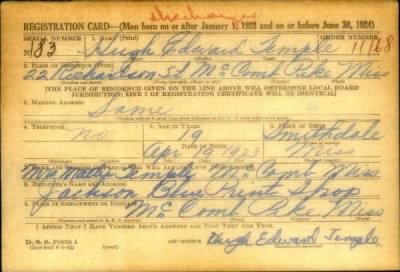 discharged
REGISTRATION CARD—(Men born on or after January 1, 1922 and on or before June 30, 1924)
SERIAL NUMBER 1. NAME (Print) ORDER NUMBER
N 183 Hugh Edward Temple 11768
2. PLACE OF RESIDENCE (Print)
221 Richardson St McComb Pike Miss
[THE PLACE OF RESIDENCE GIVEN ON THE LINE ABOVE WILL DETERMINE LOCAL BOARD
JURISDICTION; LINE 2 OF REGISTRATION CERTIFICATE WILL BE IDENTICAL]
3. MAILING ADDRESS
Same
4. TELEPHONE 5. AGE IN YEARS
no 19 Smithdale
DATE OF BIRTH
Apr 19 1923 Miss
Mrs Mattie Temple McComb Miss
8. EMPLOYER'S NAME AND ADDRESS
Jackson Blue Print Shop
9. PLACE OF EMPLOYMENT OR BUSINESS
McComb Pike Miss
I AFFIRM THAT I HAVE VERIFIED ABOVE ANSWERS AND THAT THEY ARE TRUE.
D. S. S. FORM 1
Hugh Edward Temple